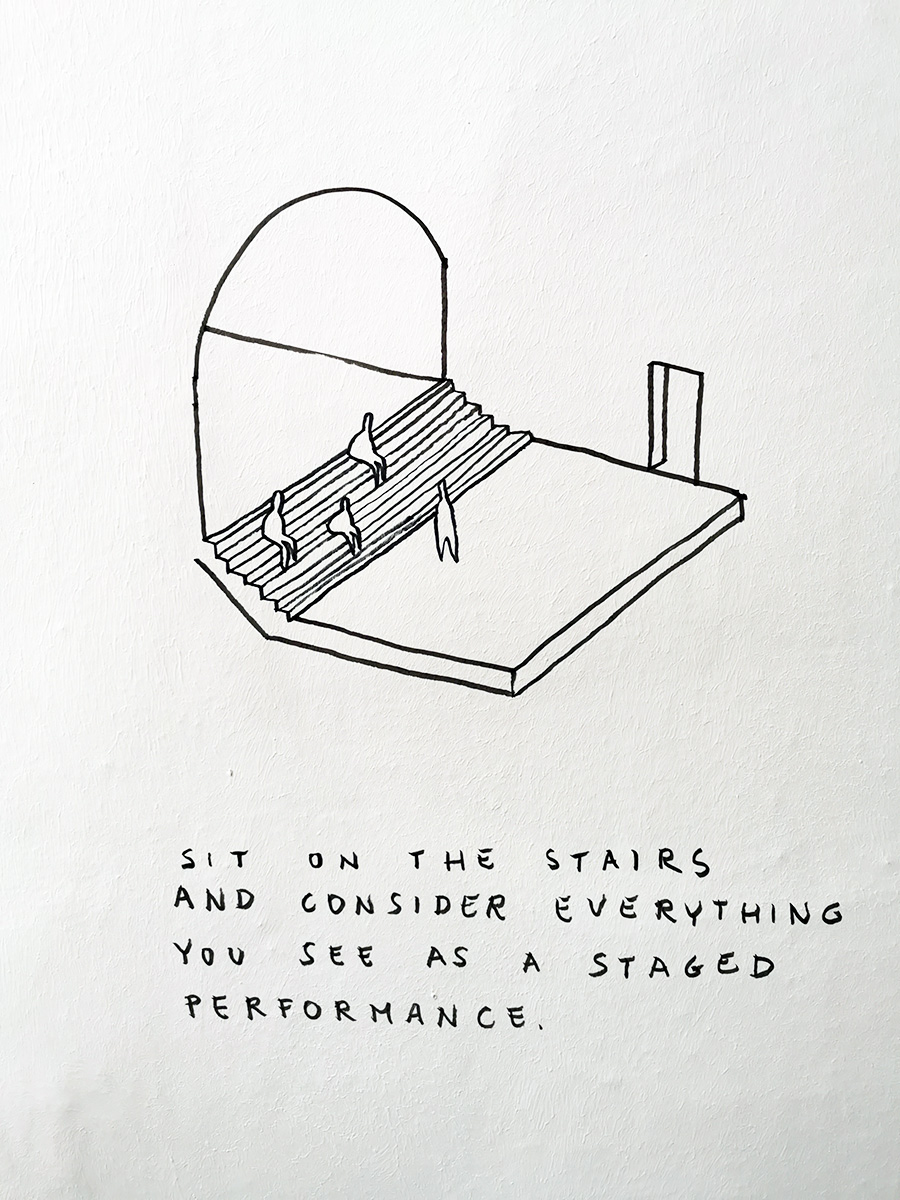 SIT ON THE STAIRS
AND CONSIDER EVERYTHING
YOU SEE AS A STAGED
PERFORMANCE.